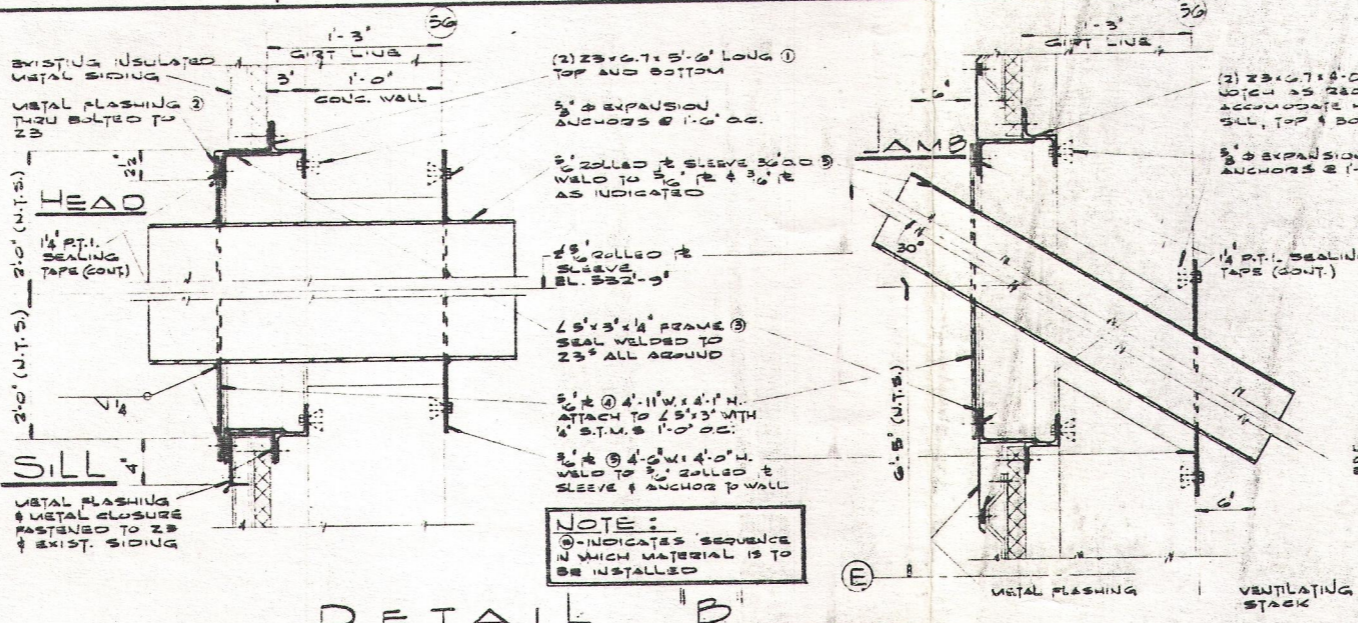 56
1'-3"
GIRT LINE
3"
1'-0"
CONC. WALL
EXISTING INSULATED
METAL SIDING
METAL FLASHING ②
THRU BOLTED TO
Z3
HEAD
2'-0" (N.T.S.)
2'-0" (N.T.S.)
1/4" P.T.I.
SEALING
TAPE (CONT.)
1/4
SILL
4"
METAL FLASHING
& METAL CLOSURE
FASTENED TO Z3
& EXIST. SIDING
(2) Z3 x 6.7 x 5'-6" LONG ①
TOP AND BOTTOM
EXPANSION
ANCHORS @ 1'-6" O.C.
5/16" ROLLED ⅊ SLEEVE 36" O.D
WELD TO 5/16" ⅊ & 3/16" ⅊
AS INDICATED
ROLLED ⅊
SLEEVE
EL. 532'-9"
∠ 5" x 3" x 1/4" FRAME ③
SEAL WELDED TO
Z3ˢ ALL AROUND
5/16" ⅊ ④ 4'-11" W. x 4'-1" H.
ATTACH TO ∠ 5" x 3" WITH
1/4" S.T.M.S 1'-0" O.C.
3/16" ⅊ ⑤ 4'-6" W. x 4'-0" H.
WELD TO 5/16" ROLLED ⅊
SLEEVE & ANCHOR TO WALL
NOTE:
- INDICATES SEQUENCE
IN WHICH MATERIAL IS TO
BE INSTALLED
DETAIL "B"
56
1'-3"
GIRT LINE
6"
(2) Z3 x 6.7 x
NOTCH AS
ACCOMODATE
SILL, TOP &
EXPANSION
ANCHORS @
JAMB
30°
1/4" P.T.I. SEALING
TAPE (CONT.)
6'-5" (N.T.S.)
6"
E
METAL FLASHING
VENTILATING
STACK